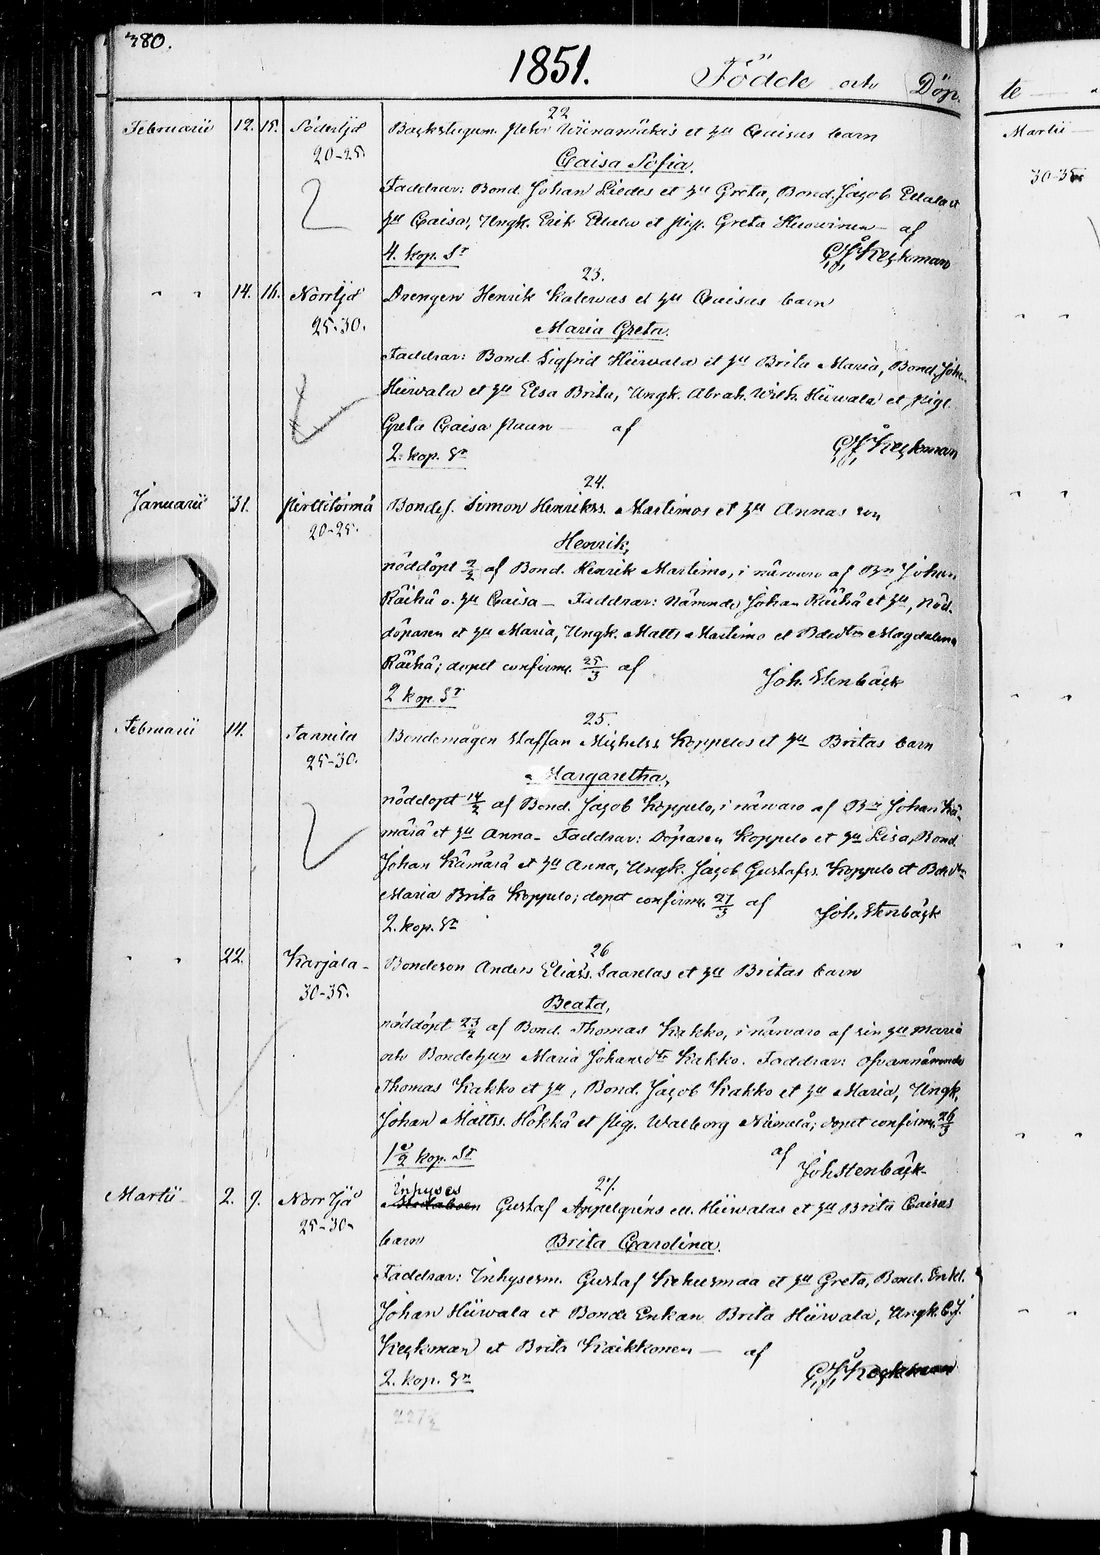 380.
1851. Födde och Döp.
te
22
Februarii 12. 15. Söderljå Backstugum. Petri Wiinamäkis et hu Caisas barn
20-25. Caisa Sofia.
Faddrar: Bond. Johan Liedes et hu Greta, Bond. Jacob Ellala et
hu Caisa, Ungk. Erik Ellala et pig. Greta af
4. kop. Sr
23.
" " 14. 16. Norrljå Drengen Henrik Kalewas et hu Caisas barn
25-30. Maria Greta.
Faddrar: Bond. Sigfrid Hiirwala et hu Brita Maria, Bond. Joh.
Hiirwala et hu Elsa Brita, Ungk. Abrah. Wilh. Hiirwala et pig.
Greta Caisa Paun af
2. kop. Sr
24.
Januarii 31. Perttitörmä Bondes. Simon Henrikss. Martimos et hu Annas son
20-25. Henrik,
nöddöpt 2/2 af Bond. Henrik Martimo, i närwaro af Bn Johan
Räihä o. hu Caisa – Faddrar: Nämnde Johan Räihä et hu, Nöd-
döparen et hu Maria, Ungk. Matts Martimo et Bdedtr Magdalena
Räihä; dopet confirm. 25/3 af Joh. Stenbäck
2 kop. Sr
25.
Februarii 14. Tannila Bondemågen Staffan Michelss. Koppelos et hu Britas barn
25-30. Margaretha,
nöddöpt 14/2 af Bond. Jacob Koppelo, i närwaro af Bn Johan Kä-
märä et hu Anna – Faddrar: Döparen Koppelo et hu Lisa, Bond.
Johan Kämärä et hu Anna, Ungk. Jacob Gustafss. Koppelo et Bdedtr
Maria Brita Koppelo; dopet confirm. 27/3 af Joh. Stenbäck
2. kop. Sr
26
" " 22. Karjala – Bondeson Anders Eliass. Saarelas et hu Britas barn
30-35. Beata,
nöddöpt 23/2 af Bond. Thomas Kakko, i närwaro af sin hu Maria
och Bondehun Maria Johansdtr Kakko. Faddrar: Ofvannämnde
Thomas Kakko et hu, Bond. Jacob Kakko et hu Maria, Ungk.
Johan Mattss. Hökkä et pig. Walborg Niemelä; dopet confirm. 26/3
1 1/2 kop. Sr af Joh Stenbäck
27.
Inhyses
Martii 2. 9. Norr Ijå Gustaf Appelgréns ell. Hiirwalas et hu Brita Caisas
25-30. barn Brita Carolina.
Faddrar: Inhysesm. Gustaf Kehusmaa et hu Greta, Bond. Enkl.
Johan Hiirwala et Bonde Enkan Brita Hiirwala, Ungk. C. J.
Keckman et Brita Kaikkonen – af
2. kop. Sr
227 1/2
Martii
30-35